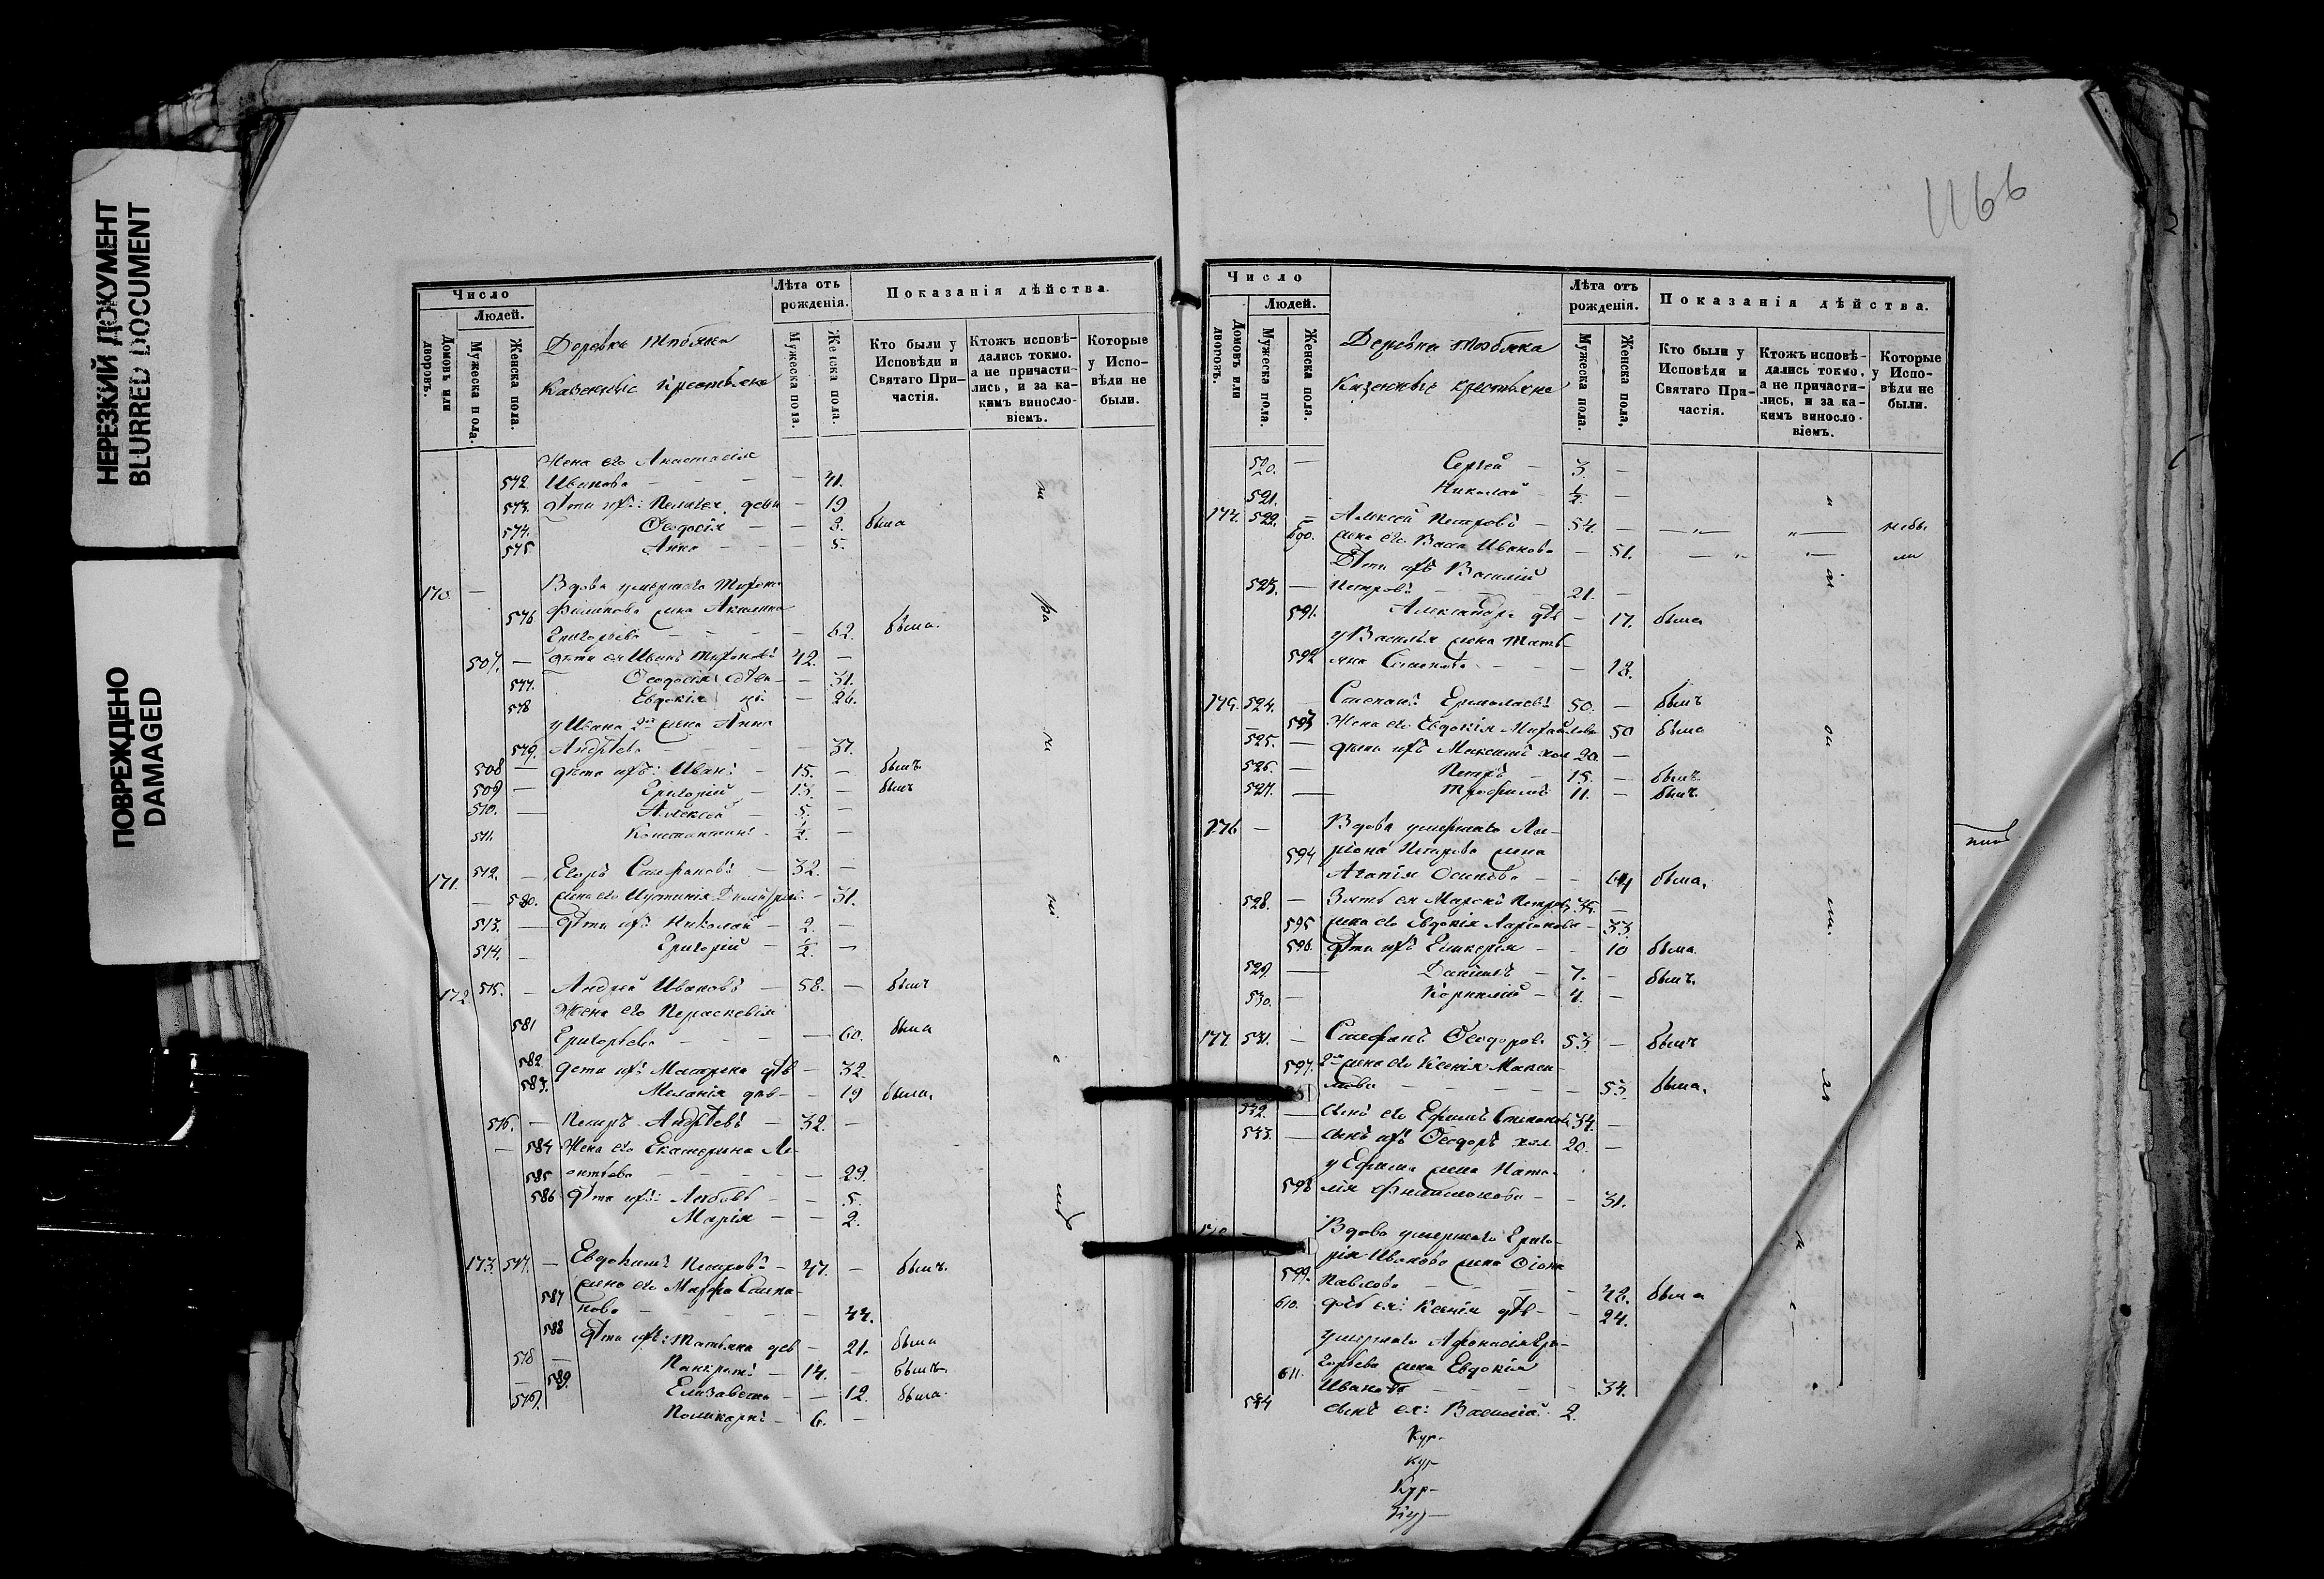 НЕРЕЗКИЙ ДОКУМЕНТ
BLURRED DOCUMENT
ПОВРЕЖДЕНО
DAMAGED
Число
Людей.
Домовъ или дворовъ.
Мужеска пола.
Женска пола.
Деревня
Казенные крестьяне
Лѣта отъ рожденія.
Мужеска пола.
Женска пола.
Показанія дѣйства.
Кто были у Исповѣди и Святаго Причастія.
Ктожъ исповѣдались токмо. а не причастились, и за какимъ винословіемъ.
Которые у Исповѣди не были.
Жена его Анастасія
572. Ивановa — 41.
573. дѣти ихъ: Пелагея — 19
574. Ѳеодосія — 8. была
575 Анна — 5.
170. — Вдова умершаго Мирона
576 Филипова жена Акилина
Григорьева — 62. была.
507. — дѣти ея Иванъ Мироновъ 42. —
577. Ѳеодосія — 31.
578 Евдокія — 26.
у Ивана 2я жена Анна
579. Андрѣева — 37.
508 — дѣти ихъ: Иванъ — 15. — былъ
509 — Григорій — 13. — былъ
510. — Алексѣй — 5. —
511. Константинъ ½. —
171. 512. — Егоръ Стефановъ — 32. —
— 580. жена его Иустинія — 31.
513. — дѣти ихъ Николай — 2. —
514. — Григорій — ½. —
172 515. — Андрей Ивановъ — 58. — былъ
Жена его Параскевія
581 Григорьева — 60. была
582. дѣти ихъ Матрена дѣв — 32.
583. Меланія дѣв — 19 была.
516. — Петръ Андрѣевъ — 32. —
— 584 Жена его Екатерина Ле-
585 онтьева — 29.
586 дѣти ихъ: Любовь — 5.
Марія — 2.
173. 517. — Евдокимъ Петровъ — 47. — былъ.
587 жена его Марфа Степа-
нова — 44.
588 дѣти ихъ: Татьяна дѣв — 21. была
518 — Панкратъ — 14. — былъ.
— 589. Елизавета — 12. была.
519. Поликарпъ — 6. —
1166
Число
Людей.
Домовъ или дворовъ.
Мужеска пола.
Женска пола.
Деревня
Казенные крестьяне
Лѣта отъ рожденія.
Мужеска пола.
Женска пола.
Показанія дѣйства.
Кто были у Исповѣди и Святаго Причастія.
Ктожъ исповѣдались токмо, а не причастились, и за какимъ винословіемъ.
Которые у Исповѣди не были.
520. — Сергей — 3 —
521. Николай ½. —
174. 522. — Алексѣй Петровъ — 54. — небы
590. жена его Васса Иванова — 51. ли
Дѣти ихъ Василій
523. — Петровъ 21. —
591. Александра дѣв — 17. была.
у Василія жена Татья-
592 на Симонова — 18.
175. 524. — Степанъ Ермолаевъ 50. — былъ
— 593 Жена его Евдокія Михайлова 50 была
525. — дѣти ихъ Максимъ хол 20. —
526. — Петръ — 15. — былъ.
527. — Трофимъ 11. — былъ.
176 — Вдова умершаго Ла-
594 ріона Петрова жена
Агапія Осипова — 64 была.
528. — Зять ея Маркъ Петровъ 35. —
595 жена его Евдокія Ларіонова — 33.
596. дѣти ихъ Гликерія — 10 была.
529. — Даніилъ — 7. — былъ.
530. — Корнилій — 4. —
177. 531. — Стефанъ Ѳеодоровъ 53. — былъ
597. 2я жена его Ксенія Макси-
мова — 53. была.
532. — сынъ его Ефимъ Степановъ 34. —
533. — сынъ ихъ Ѳеодоръ хол 20. —
у Ефима жена Ната-
598 лія Филимонова — 31.
Вдова умершаго Григо-
рія Иванова жена
599. Павлова — 48. была
610. дочь ея: Ксенія дѣв — 24.
умершаго Афанасія Гри-
611. горьева жена Евдокія
Иванова — 34.
534 сынъ ея: Василій 2.
Кур-
Кур-
Кур-
Кур-